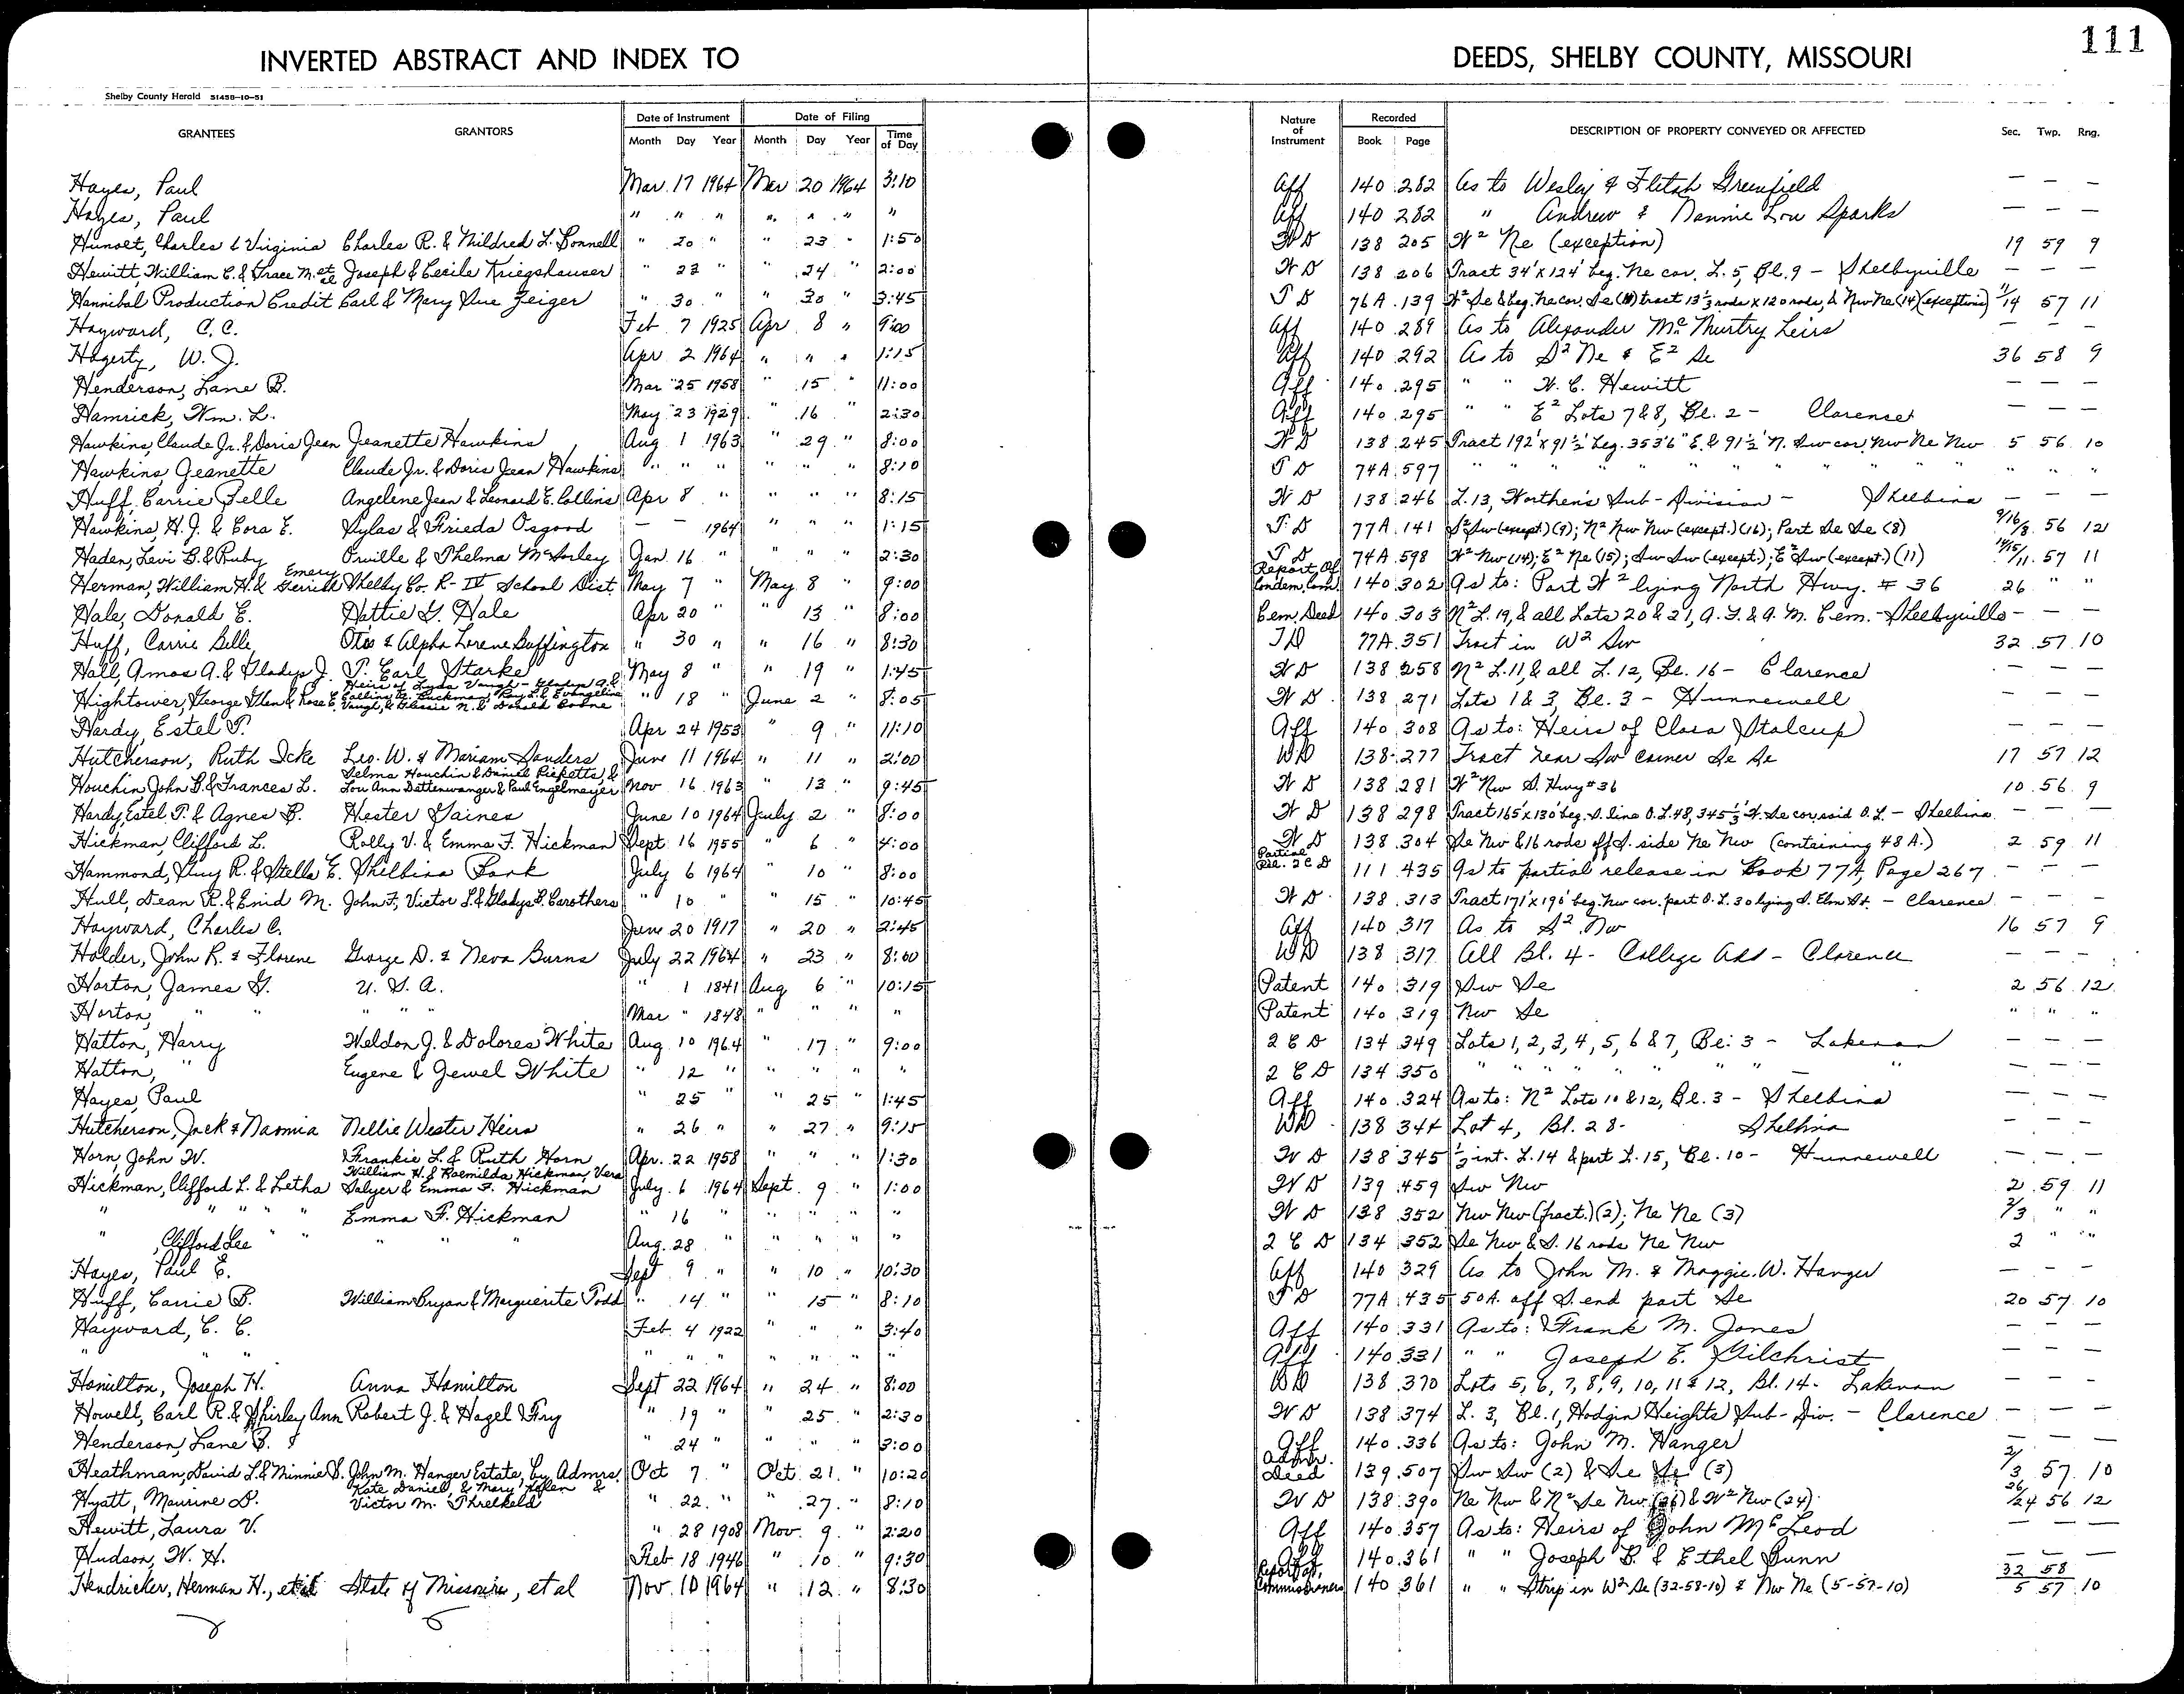 111
INVERTED ABSTRACT AND INDEX TO DEEDS, SHELBY COUNTY, MISSOURI
Shelby County Herald 51458-10-51
GRANTEES GRANTORS Date of Instrument Date of Filing Nature of Instrument Recorded DESCRIPTION OF PROPERTY CONVEYED OR AFFECTED Sec. Twp. Rng.
Month Day Year Month Day Year Time of Day Book Page
Hayes, Paul Mar. 17 1964 Mar 20 1964 3:10 Aff 140 282 As to Wesley & Fletah Greenfield — — —
Hayes, Paul " " " " " " " Aff 140 282 " Andrew & Nannie Lou Sparks — — —
Hunolt, Charles & Virginia Charles R. & Mildred L. Bonnell " 20 " " 23 " 1:50 W D 138 205 W² Ne (exception) 19 59 9
Hewitt, William C. & Grace M. et al Joseph & Cecile Kriegshauser " 23 " " 24 " 2:00 W D 138 206 Tract 34' x 124' beg. Ne cor. L. 5, Bl. 9 - Shelbyville — — —
Hannibal Production Credit Carl & Mary Sue Zeiger " 30 " " 30 " 3:45 T D 76A 139 W² Se & beg. Ne cor. Se (11) tract 13 1/3 rods x 120 rods, & Nw Ne (14) (exceptions) 11/14 57 11
Hayward, C. C. Feb 7 1925 Apr 8 " 9:00 Aff 140 289 As to Alexander Mc Murtry Heirs — — —
Hagerty, W. J. Apr 2 1964 " " " 1:15 Aff 140 292 As to S² Ne & E² Se 36 58 9
Henderson, Lane B. Mar 25 1958 " 15 " 11:00 Aff 140 295 " " W. C. Hewitt — — —
Hamrick, Wm. L. May 23 1929 " 16 " 2:30 Aff 140 295 " " E² Lots 7 & 8, Bl. 2 - Clarence — — —
Hawkins, Claude Jr. & Doris Jean Jeanette Hawkins Aug 1 1963 " 29 " 8:00 W D 138 245 Tract 192' x 91½' beg. 353'6" E. & 91½' N. Sw cor. Nw Ne Nw 5 56 10
Hawkins, Jeanette Claude Jr. & Doris Jean Hawkins " " " " " " 8:10 T D 74A 597 " " " " " " " " " " " " "
Huff, Carrie Belle Angelene Jean & Leonard E. Collins Apr 8 " " " " 8:15 W D 138 246 L. 13, Worthen's Sub-Division - Shelbina — — —
Hawkins, H. J. & Cora E. Sylas & Frieda Osgood — — 1964 " " " 1:15 T. D 77A 141 S² Sw (except) (9); N² Nw Nw (except.) (16); Part Se Se (8) 9/16/8 56 12
Haden, Levi B. & Ruby Orville & Thelma McSorley Jan 16 " " " " 2:30 T D 74A 598 W² Nw (14); E² Ne (15); Sw Sw (except.); E² Sw (except.) (11) 14/15/11 57 11
Herman, William H. & Emery Gerrild Shelby Co. R-IV School Dist. May 7 " May 8 " 9:00 Report of Condem. Com. 140 302 As to: Part W² lying North Hwy. # 36 26 " "
Hale, Donald E. Hattie G. Hale Apr 20 " " 13 " 8:00 Cem. Deed 140 303 N² L. 19, & all Lots 20 & 21, A. F. & A. M. Cem. - Shelbyville - — —
Huff, Carrie Belle Otis & Alpha Lorene Buffington " 30 " " 16 " 8:30 T D 77A 351 Tract in W² Sw 32 57 10
Hall, Amos A. & Gladys J. T. Earl Starke May 8 " " 19 " 1:45 W D 138 258 N² L. 11, & all L. 12, Bl. 16 - Clarence — — —
Hightower, George Glen & Rose E. Heirs of Lyda Vaugh - Gladyn A. & Buckman, Ray L. & Evangeline Vaugh, & Glessie N. & Donald Boone " 18 " June 2 " 8:05 W D 138 271 Lots 1 & 3, Bl. 3 - Hunnewell — — —
Hardy, Estel T. Apr 24 1953 " 9 " 11:10 Aff 140 308 As to: Heirs of Clara Stalcup — — —
Hutcherson, Ruth Icke Leo. W. & Mariam Sanders June 11 1964 " 11 " 2:00 WD 138 277 Tract near Sw corner Se Se 17 57 12
Houchin, John B. & Frances L. Selma Houchin & Daniel Ricketts, & Lou Ann Dattenwanger & Paul Engelmayer Nov 16 1963 " 13 " 9:45 W D 138 281 W² Nw S. Hwy # 36 10 56 9
Hardy, Estel, T. & Agnes B. Hester Gaines June 10 1964 July 2 " 8:00 W D 138 298 Tract 165' x 130' beg. S. line O. L. 48, 345 1/3' W. Se cor. said O. L. - Shelbina — — —
Hickman, Clifford L. Rolly V. & Emma F. Hickman Sept 16 1955 " 6 " 4:00 W D 138 304 Se Nw & 16 rods off S. side Ne Nw (containing 48 A.) 2 59 11
Hammond, Guy R. & Stella E. Shelbina Bank July 6 1964 " 10 " 8:00 Partial Rel. 2 C D 111 435 As to partial release in Book 77A, Page 267 — — —
Hull, Dean R. & Enid M. John F., Victor S. & Gladys P. Carothers " 10 " " 15 " 10:45 W D 138 313 Tract 171' x 190' beg. Nw cor. part O. L. 30 lying S. Elm St. - Clarence — — —
Hayward, Charles C. June 20 1917 " 20 " 2:45 Aff 140 317 As to S² Nw 16 57 9
Holder, John R. & Florene George D. & Neva Burns July 22 1964 " 23 " 8:00 WD 138 317 All Bl. 4 - College Add - Clarence — — —
Horton, James G. U. S. A. " 1 1841 Aug 6 " 10:15 Patent 140 319 Sw Se 2 56 12
Horton, " " " " " Mar " 1848 " " " " Patent 140 319 Nw Se " " "
Hatton, Harry Weldon J. & Dolores White Aug 10 1964 " 17 " 9:00 2 C D 134 349 Lots 1, 2, 3, 4, 5, 6 & 7, Bl. 3 - Lakenan — — —
Hatton, " Eugene & Jewel White " 12 " " " " " 2 C D 134 350 " " " " " " — " — — —
Hayes, Paul " 25 " " 25 " 1:45 Aff 140 324 As to: N² Lots 10 & 12, Bl. 3 - Shelbina — — —
Hutcherson, Jack & Naomia Nellie Wester Heirs " 26 " " 27 " 9:15 WD 138 344 Lot 4, Bl. 28 - Shelbina — — —
Horn, John W. Frankie L. & Ruth Horn Apr. 22 1958 " " " 1:30 W D 138 345 ½ int. L. 14 & part L. 15, Bl. 10 - Hunnewell — — —
Hickman, Clifford L. & Letha William H. & Raemilda Hickman, Vera Salyer & Emma F. Hickman July 6 1964 Sept. 9 " 1:00 W D 139 459 Sw Nw 2 59 11
" " " " " Emma F. Hickman " 16 " " " " " W D 138 352 Nw Nw (fract.) (2); Ne Ne (3) 2/3 " "
" , Clifford Lee " " " Aug. 28 " " " " " 2 C D 134 352 Se Nw & S. 16 rods Ne Nw 2 " "
Hayes, Paul E. Sept 9 " " 10 " 10:30 Aff 140 329 As to John M. & Maggie W. Hanger — — —
Huff, Carrie B. William Bryan & Marguerite Todd " 14 " " 15 " 8:10 T D 77A 435 50A. off S. end part Se 20 57 10
Hayward, C. C. Feb. 4 1922 " " " 3:40 Aff 140 331 As to: Frank M. Jones — — —
" " " " " " " " " " Aff 140 331 " " Joseph E. Gilchrist — — —
Hamilton, Joseph H. Anna Hamilton Sept 22 1964 " 24 " 8:00 WD 138 370 Lots 5, 6, 7, 8, 9, 10, 11 & 12, Bl. 14 - Lakenan — — —
Howell, Carl R. & Shirley Ann Robert J. & Hazel Fry " 19 " " 25 " 2:30 W D 138 374 L. 3, Bl. 1, Hodgin Heights Sub-Div. - Clarence — — —
Henderson, Lane B. " 24 " " " " 3:00 Aff 140 336 As to: John M. Hanger — — —
Heathman, David L. & Minnie S. John M. Hanger Estate, by Admrs. Oct 7 " Oct 21 " 10:20 Admr. Deed 139 507 Sw Sw (2) & Se Se (3) 2/3 57 10
Hyatt, Maurine D. Kate Daniel, & Mary Helen & Victor M. Threlkeld " 22 " " 27 " 8:10 W D 138 390 Ne Nw & N² Se Nw (26) & W² Nw (24) 26/24 56 12
Hewitt, Laura V. " 28 1908 Nov. 9 " 2:20 Aff 140 357 As to: Heirs of John McLeod — — —
Hudson, W. H. Feb 18 1946 " 10 " 9:30 Aff 140 361 " " Joseph B. & Ethel Bunn — — —
Hendricker, Herman H., et al State of Missouri, et al Nov. 10 1964 " 12 " 8:30 Report of Commissioners 140 361 " " Strip in W² Se (32-58-10) & Nw Ne (5-57-10) 32 58 5 57 10